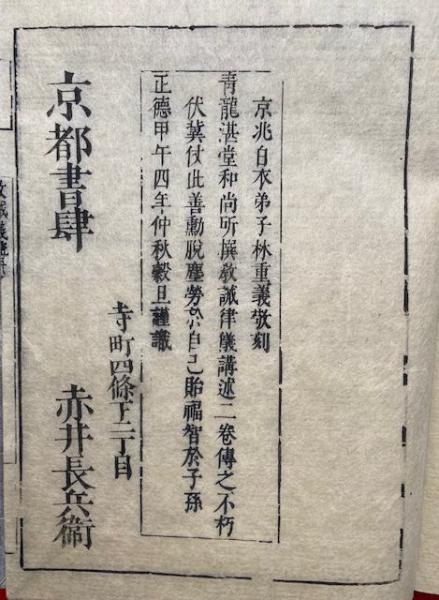 京兆白衣弟子林重義敬刻
青龍湛堂和尚所撰敎誡律儀講述二卷傳之不朽
伏冀仗此善勳脫塵勞於自己貽福智於子孫
正德甲午四年仲秋穀旦謹識
寺町四條下二丁目
京都書肆 赤井長兵衞